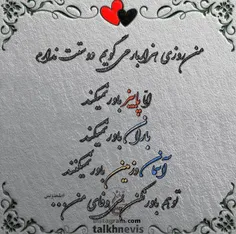 من روزی هزار بار می گویم دوستت ندارم
امّا پاییز باور نمیکند
باران باور نمیکند
آسمان و زمین باور نمیکنند
تو هم باور نکن بی وفای من ...
instagram.com
talkhnevis